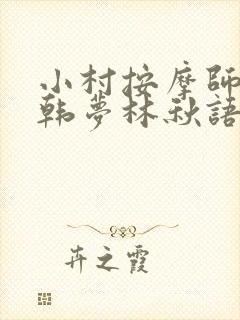 小村按摩師
韩夢林秋語
卉之霞